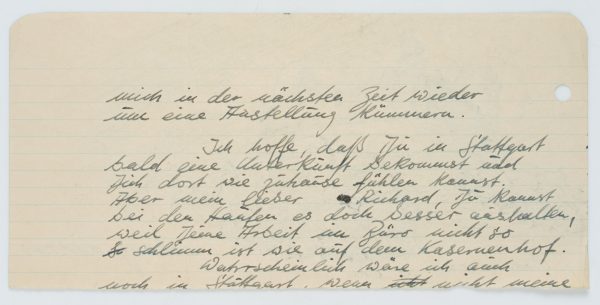 mich in der nächsten Zeit wieder
um eine Anstellung kümmern.
Ich hoffe, daß Du in Stuttgart
bald eine Unterkunft bekommst und
Dich dort wie zuhause fühlen kannst.
Aber mein lieber Richard, Du kannst
bei den Haufen es doch besser aushalten,
weil Deine Arbeit im Büro nicht so
schlimm ist wie auf dem Kasernenhof.
Wahrscheinlich wäre ich auch
noch in Stuttgart. wenn nicht meine